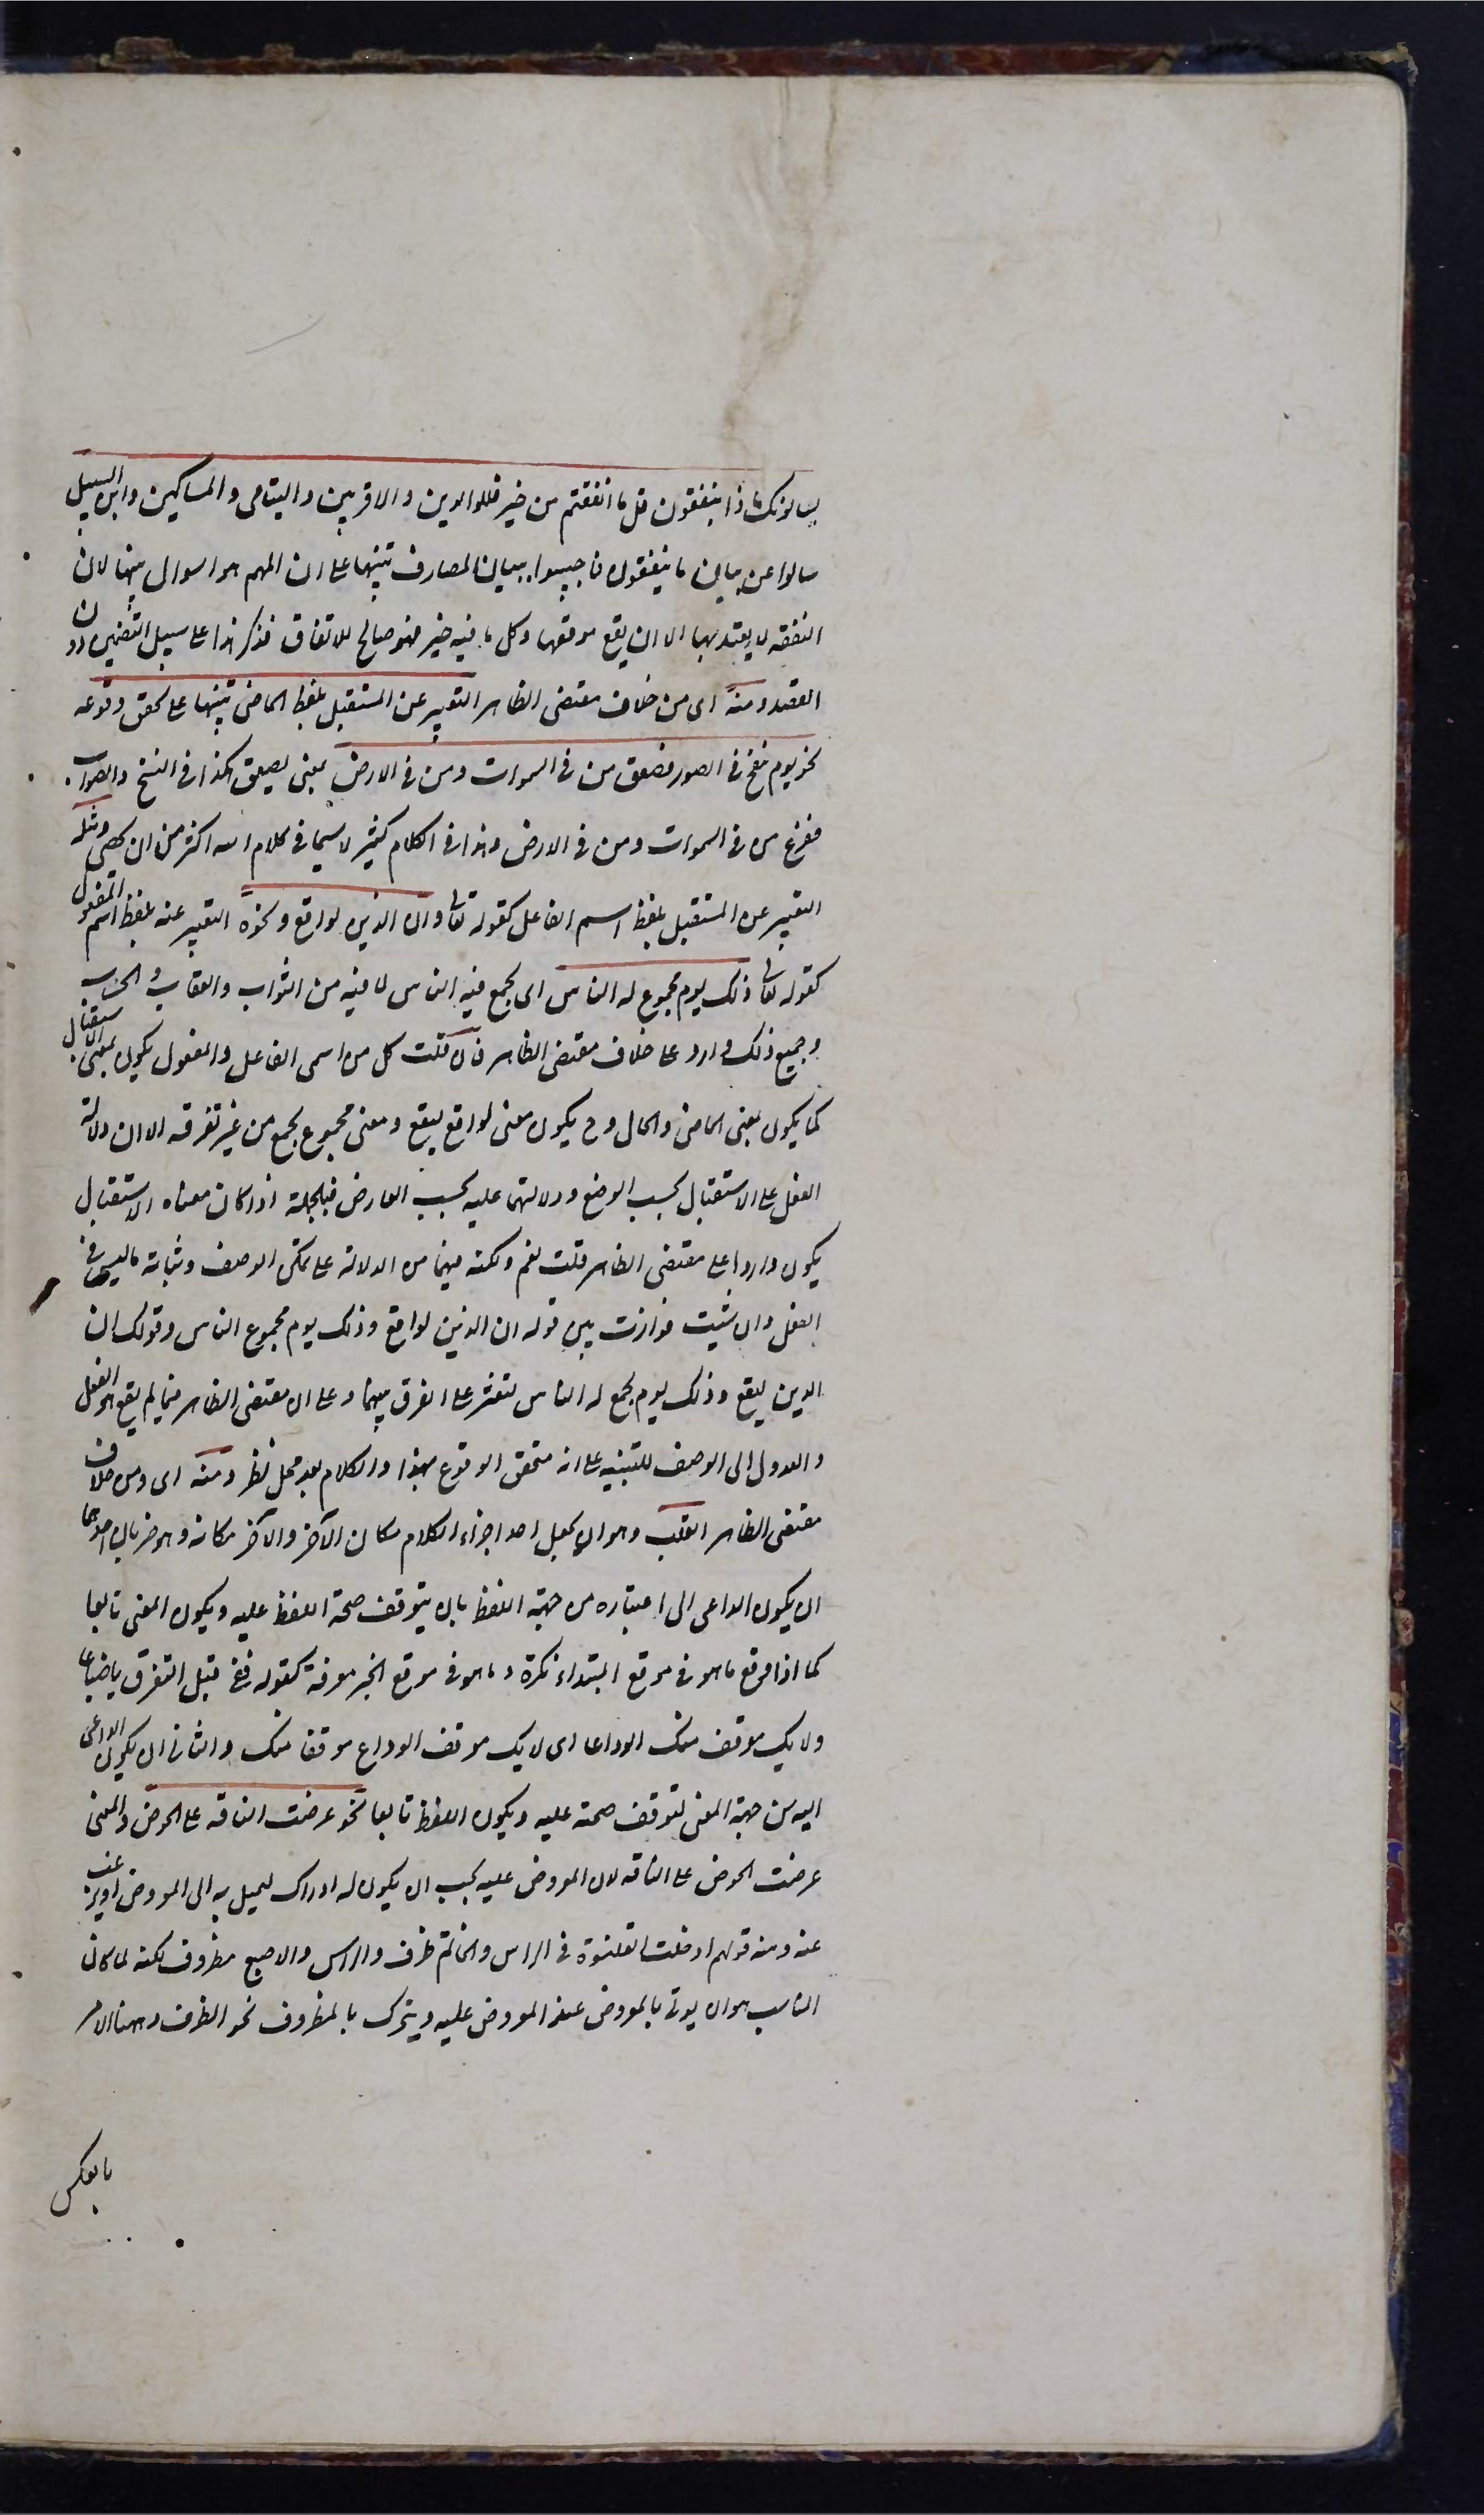 يسالونك ماذا ينفقون قل ما انفقتم من خير فللوالدين والاقربين واليتامى والمساكين وابن السبيل
سالوا عن بيان ما ينفقون فاجيبوا ببيان المصارف تنبيها على ان المهم هو السوال عنها لان
النفقة لا يعتد بها الا ان يقع موقعها وكل ما فيه خير فهو صالح للانفاق فذكر هذا على سبيل التضمين دون
القصد ومنه اى من خلاف مقتضى الظاهر التعبير عن المستقبل بلفظ الماضى تنبيها على تحقق وقوعه
نحو يوم ينفخ فى الصور فصعق من فى السموات ومن فى الارض بمعنى يصعق هكذا فى النسخ والصواب
ففزع من فى السموات ومن فى الارض وهذا فى الكلام كثير لا سيما فى كلام الله اكثر من ان يحصى ومثله
التعبير عن المستقبل بلفظ اسم الفاعل كقوله تعالى وان الدين لواقع ونحوه التعبير عنه بلفظ اسم المفعول
كقوله تعالى ذلك يوم مجموع له الناس اى يجمع فيه الناس لما فيه من الثواب والعقاب والحساب
وجميع ذلك وارد على خلاف مقتضى الظاهر فان قلت كل من اسمى الفاعل والمفعول يكون بمعنى الاستقبال
كما يكون بمعنى الماضى والحال وح يكون معنى لواقع ليقع ومعنى مجموع يجمع من غير تفرقه الا ان دلالة
الفعل على الاستقبال بحسب الوضع ودلالتهما عليه بحسب العارض فبالجملة اذا كان معناه الاستقبال
يكون واردا على مقتضى الظاهر قلت نعم ولكنه فيهما من الدلالة على تمكن الوصف وثباته ما ليس فى
الفعل وان شئت فوازن بين قوله ان الدين لواقع وذلك يوم مجموع الناس وقولك ان
الدين ليقع وذلك يوم يجمع له الناس لتعثر على الفرق بينهما وعلى ان مقتضى الظاهر فيما لم يقع هو الفعل
والعدول الى الوصف للتنبيه على انه متحقق الوقوع هذا والكلام بعد محل نظر ومنه اى ومن خلاف
مقتضى الظاهر القلب وهو ان يجعل احد اجزاء الكلام مكان الآخر والآخر مكانه وهو ضربان احدهما
ان يكون الداعى الى اعتباره من جهة اللفظ بان يتوقف صحة اللفظ عليه ويكون المعنى تابعا
كما اذا وقع ما هو فى موقع المبتداء نكرة وما هو فى موقع الخبر معرفة كقوله قفى قبل التفرق يا ضباعا
ولا يك موقف منك الوداعا اى لا يك موقف الوداع موقفا منك والثانى ان يكون الداعى
اليه من جهة المعنى لتوقف صحته عليه ويكون اللفظ تابعا نحو عرضت الناقه على الحوض والمعنى
عرضت الحوض على الناقه لان المعروض عليه يجب ان يكون له ادراك ليميل به الى المعروض او يرغب
عنه ومنه قولهم ادخلت القلنسوة فى الراس والخاتم ظرف والراس والاصبع مظروف لكنه لما كان
المناسب هو ان يوتى بالمعروض عند المعروض عليه ويتحرك بالمظروف نحو الظرف وههنا الامر
بالعكس